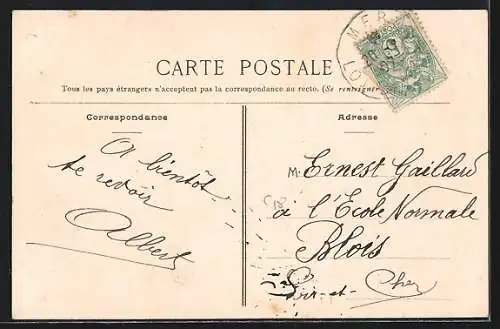 MER
CARTE POSTALE
Tous les pays étrangers n'acceptent pas la correspondance au recto. (Se renseigner
Correspondance
A bientôt
te revoir
Albert
Adresse
M. Ernest Gaillard
à l'École Normale
Blois
Loir-et-Cher